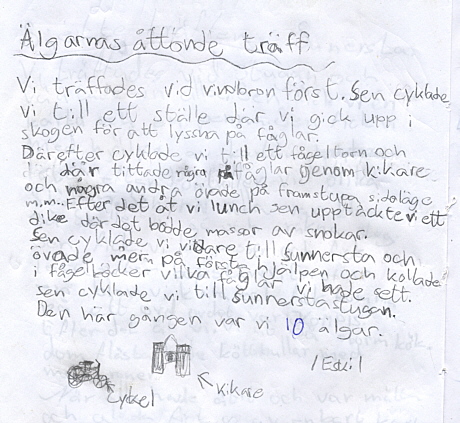 Älgarnas åttonde träff
Vi träffades vid vindbron först. Sen cyklade
vi till ett ställe där vi gick upp i
skogen för att lyssna på fåglar.
Därefter cyklade vi till ett fågeltorn och
där tittade några på fåglar genom kikare
och några andra övade på framstupa sidoläge
m.m. Efter det åt vi lunch sen upptäckte vi ett
dike där det bodde massor av snokar.
Sen cyklade vi vidare till Sunnersta och
övade mera på första hjälpen och kollade
i fågelböcker vilka fåglar vi hade sett.
sen cyklade vi till Sunnerstastugan.
Den här gången var vi 10 älgar.
/Eskil
Kikare
Cykel